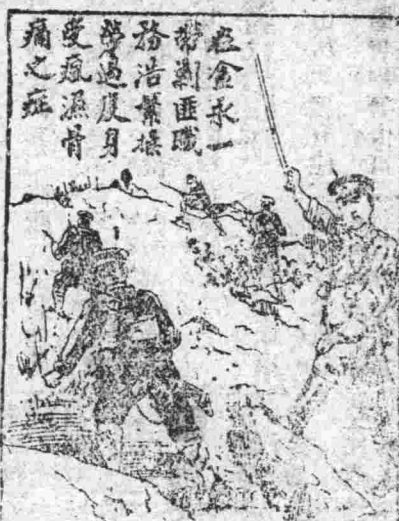 在金永一
帶剿匪職
務浩繁操
勞過度身
受瘋濕骨
痛之症